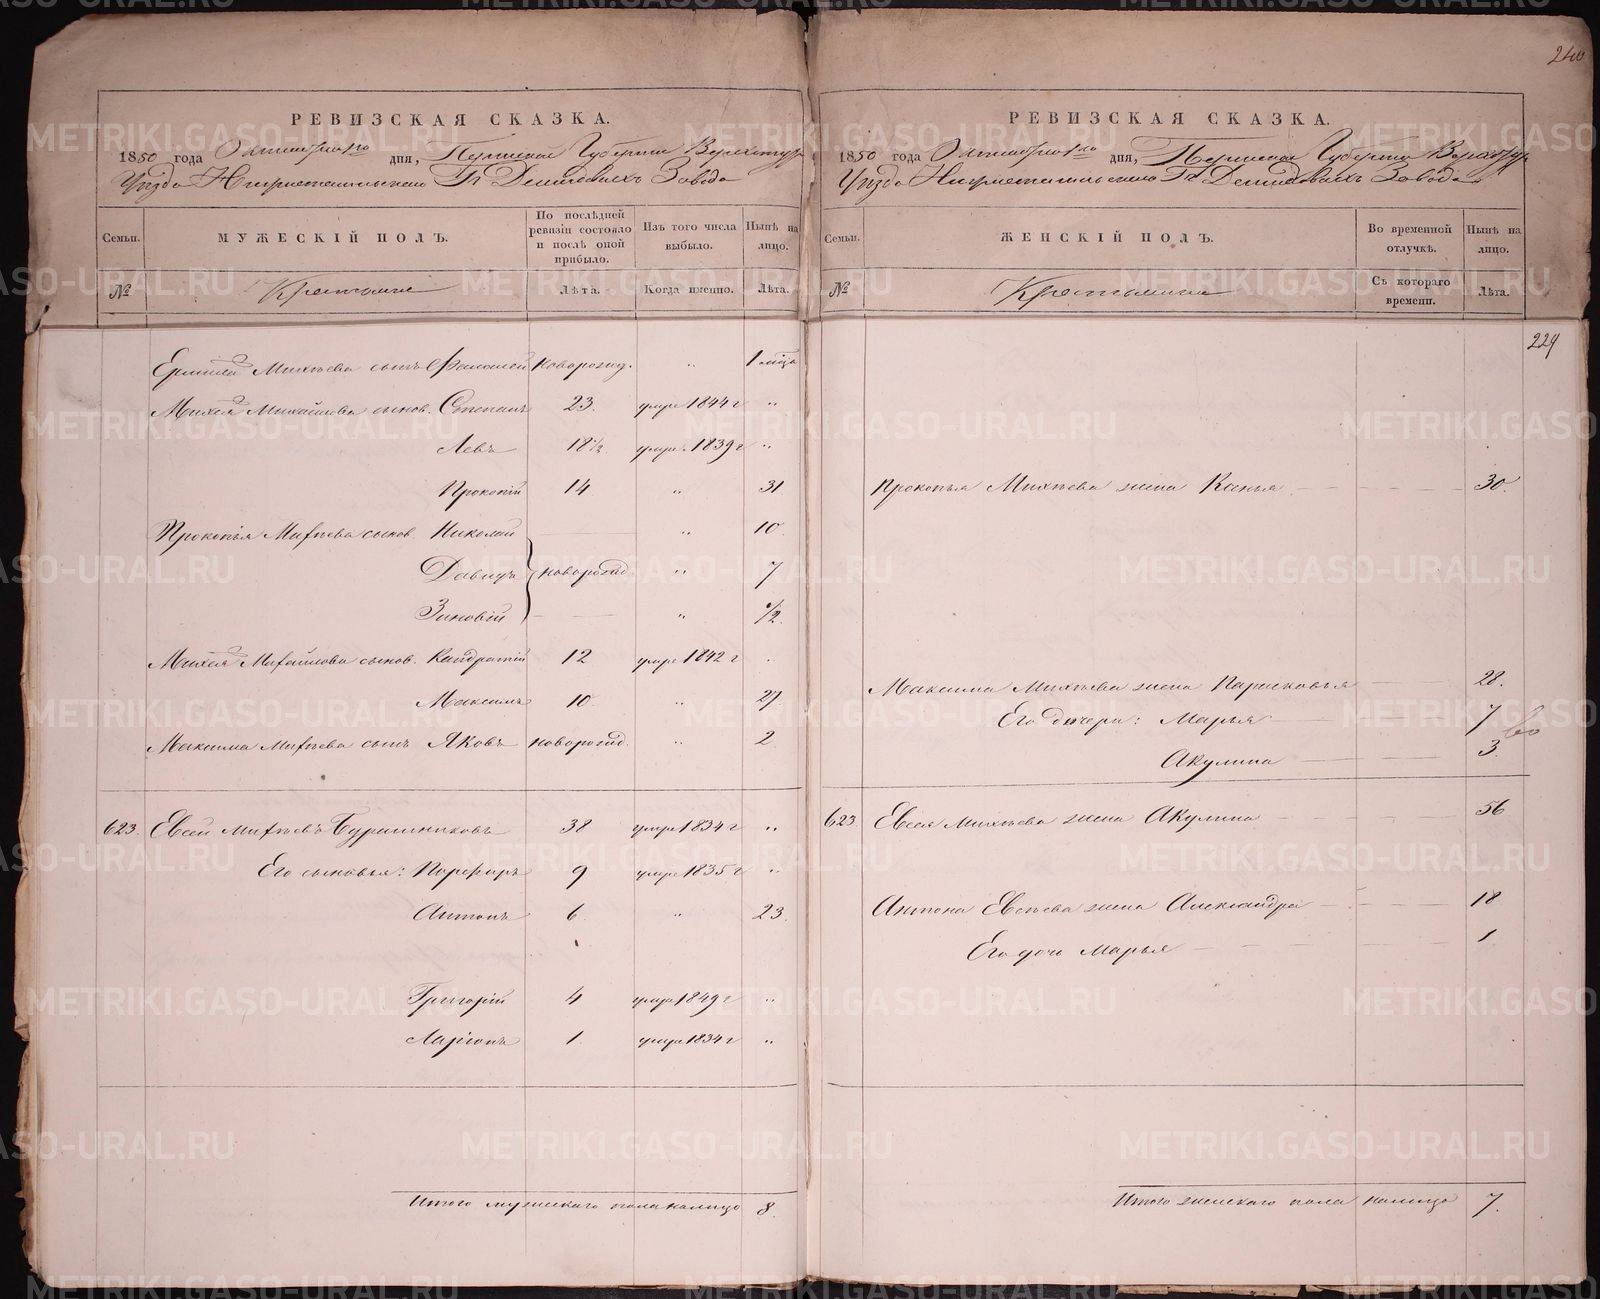 240
РЕВИЗСКАЯ СКАЗКА.
1850 года Октября 1го дня, Пермской Губернии Верхотур.
Уѣзда Нижнетагильскаго Гг Демидовыхъ Завода
Семьи.
МУЖЕСКІЙ ПОЛЪ.
По послѣдней ревизіи состояло и послѣ оной прибыло.
Изъ того числа выбыло.
Нынѣ на лицо.
№
Крестьяне
Лѣта.
Когда именно.
Лѣта.
Михея сынъ новорожд. " 1 мѣся
Михея Михайлова сынов. Степанъ 23. умре 1844 г "
Левъ 18½ умре 1839 г "
Прокопій 14 " 31
Прокопья Михѣева сынов. Николай — " 10
Давидъ новорожд. " 7
Зиновій — " ½
Михея Михайлова сынов. Кандратій 12 умре 1842 г
Максимъ 10 " 27
Максима Михѣева сынъ Яковъ новорожд. " 2
623. Евсей Михѣевъ Бурашниковъ 38 умре 1834 г "
Его сыновья: Порфиръ 9 умре 1835 г "
Антонъ 6 " 23.
Григорій 4 умре 1849 г "
Ларіонъ 1 умре 1834 г "
Итого мужескаго пола налицо 8.
РЕВИЗСКАЯ СКАЗКА.
1850 года Октября 1го дня, Пермской Губерніи Верхотур.
Уѣзда Нижнетагильскаго Гг Демидовыхъ Завода
Семьи.
ЖЕНСКІЙ ПОЛЪ.
Во временной отлучкѣ.
Нынѣ на лицо.
№
Крестьянки
Съ котораго времени.
Лѣта.
229
Прокопья Михѣева жена Ксенья 30.
Максима Михѣева жена Парасковья 28.
Его дочери: Марья 7
Акулина 3
623 Евсея Михѣева жена Акулина 56
Антона Евсѣева жена Александра 18
Его дочь Марья 1
Итого женскаго пола налицо 7.
METRIKI.GASO-URAL.RU